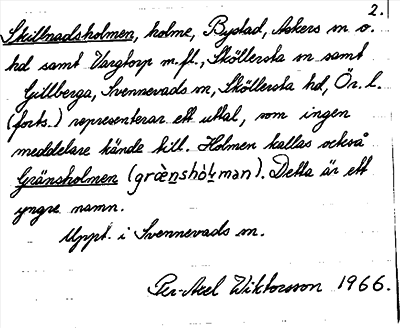 2.
Skillnadsholmen, holme, Bystad, Askers sn o.
hd samt Vargtorp m.fl., Sköllersta sn samt
Gillberga, Svennevads sn, Sköllersta hd, Ör. l.
(forts.) representerar ett uttal, som ingen
meddelare kände till. Holmen kallas också
Gränsholmen (græ̀nshòl̥man). Detta är ett
yngre namn.
Uppt. i Svennevads sn.
Per-Axel Wiktorsson 1966.